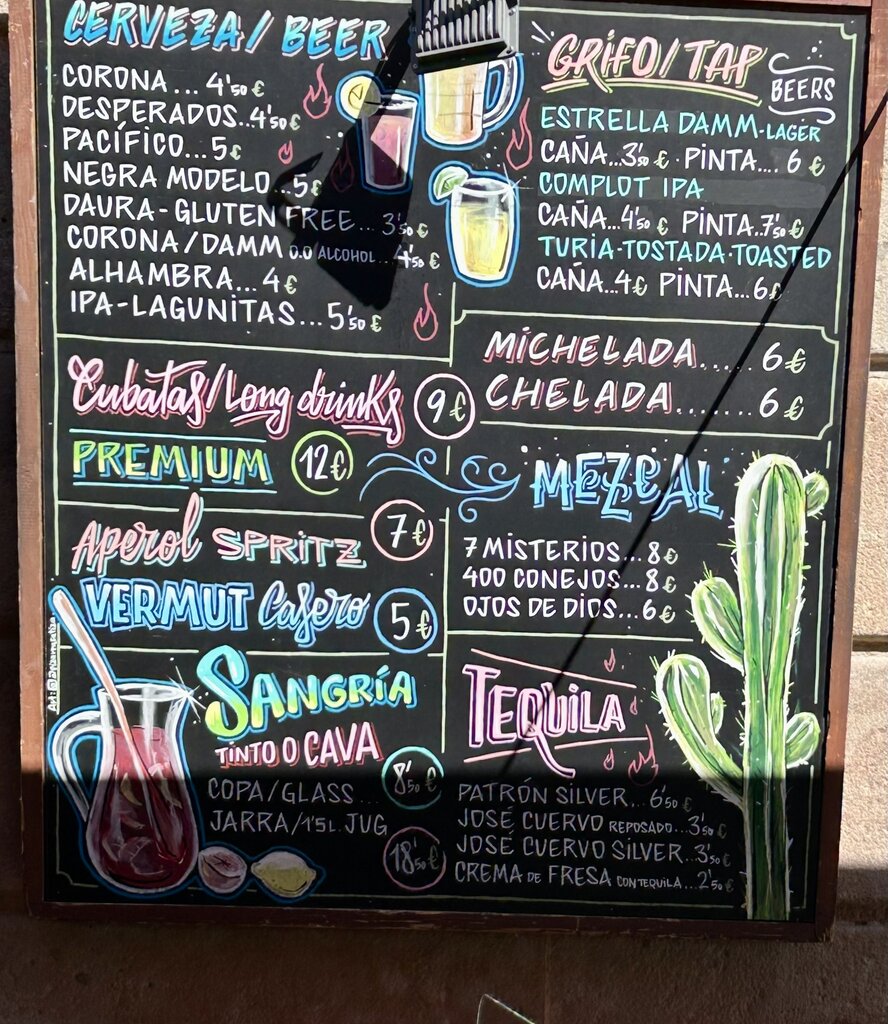 CERVEZA/ BEER
CORONA ... 4'50 €
DESPERADOS...4'50 €
PACÍFICO...5€
NEGRA MODELO...5€
DAURA-GLUTEN FREE... 3'50 €
CORONA/DAMM 0.0 ALCOHOL...4'50 €
ALHAMBRA... 4 €
IPA-LAGUNITAS...5'50 €
GRIFO/TAP
BEERS
ESTRELLA DAMM-LAGER
CAÑA...3'50 € · PINTA.... 6 €
COMPLOT IPA
CAÑA...4'50 € PINTA..7'50 €
TURIA-TOSTADA-TOASTED
CAÑA...4€ PINTA...6€
MICHELADA..... 6€
CHELADA....... 6€
Cubatas/Long drinks 9€
PREMIUM 12€
Aperol SPRITZ 7€
VERMUT Casero 5€
MEZCAL
7 MISTERIOS...8€
400 CONEJOS...8€
OJOS DE DIOS...6€
SANGRÍA
TINTO O CAVA
COPA/GLASS... 8'50 €
JARRA/1'5L JUG 18'50 €
TEQUILA
PATRÓN SILVER... 6'50 €
JOSÉ CUERVO REPOSADO...3'50 €
JOSÉ CUERVO SILVER..3'50 €
CREMA DE FRESA CON TEQUILA...2'50 €